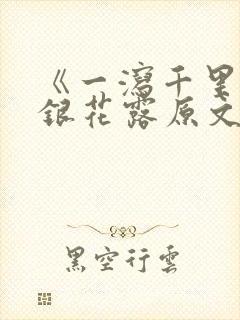 《一瀉千里
銀花露原文
黑空行雲